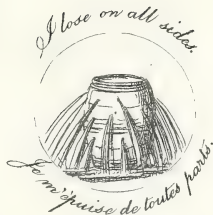 I lose on all sides.
Je m'épuise de toutes parts.